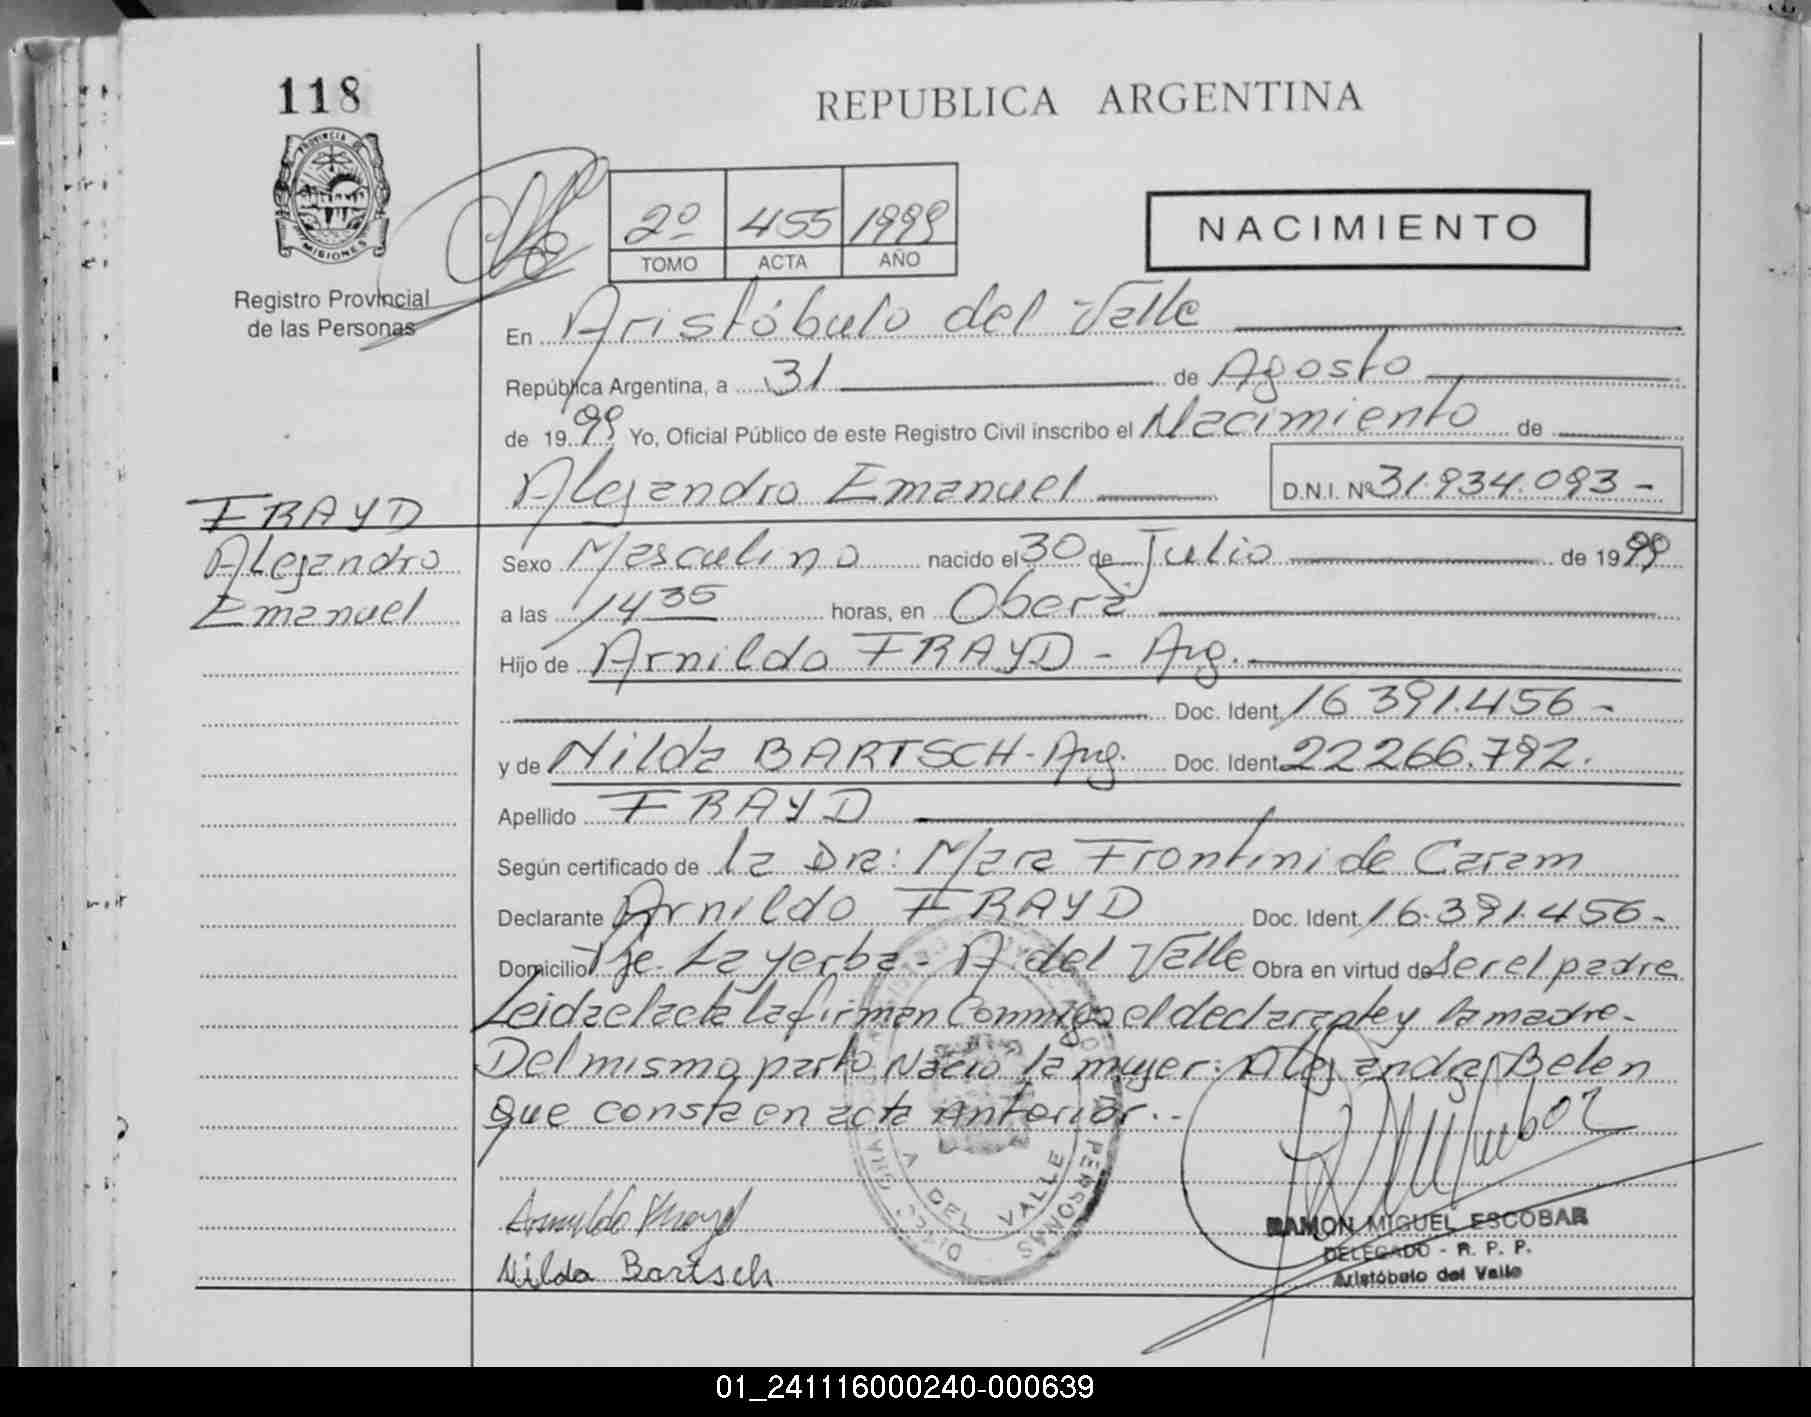 118
REPUBLICA ARGENTINA
PROVINCIA DE
MISIONES
Registro Provincial
de las Personas
2º 455 1999
TOMO ACTA AÑO
NACIMIENTO
En Aristóbulo del Valle
República Argentina, a 31 de Agosto
de 1999 Yo, Oficial Público de este Registro Civil inscribo el Nacimiento de
Alejandro Emanuel D.N.I. Nº 31.934.093-
FRAYD
Alejandro
Emanuel
Sexo Masculino nacido el 30 de Julio de 1999
a las 14 35 horas, en Oberá
Hijo de Arnildo FRAYD - Arg.
Doc. Ident. 16 391.456-
y de Nilda BARTSCH - Arg. Doc. Ident. 22266.792.
Apellido FRAYD
Según certificado de la Dra: Mara Frontini de Caram
Declarante Arnildo FRAYD Doc. Ident. 16.391.456-
Domicilio Pje. La yerba - A del Valle Obra en virtud de Ser el padre
Leida el acta la firman Conmigo el declarante y la madre-
Del mismo parto Nació la mujer: Alejandra Belen
que consta en acta Anterior..-
A. DEL VALLE
PERSONAS
Nilda Bartsch
RAMON MIGUEL ESCOBAR
DELEGADO - R. P. P.
Aristóbulo del Valle
01_241116000240-000639